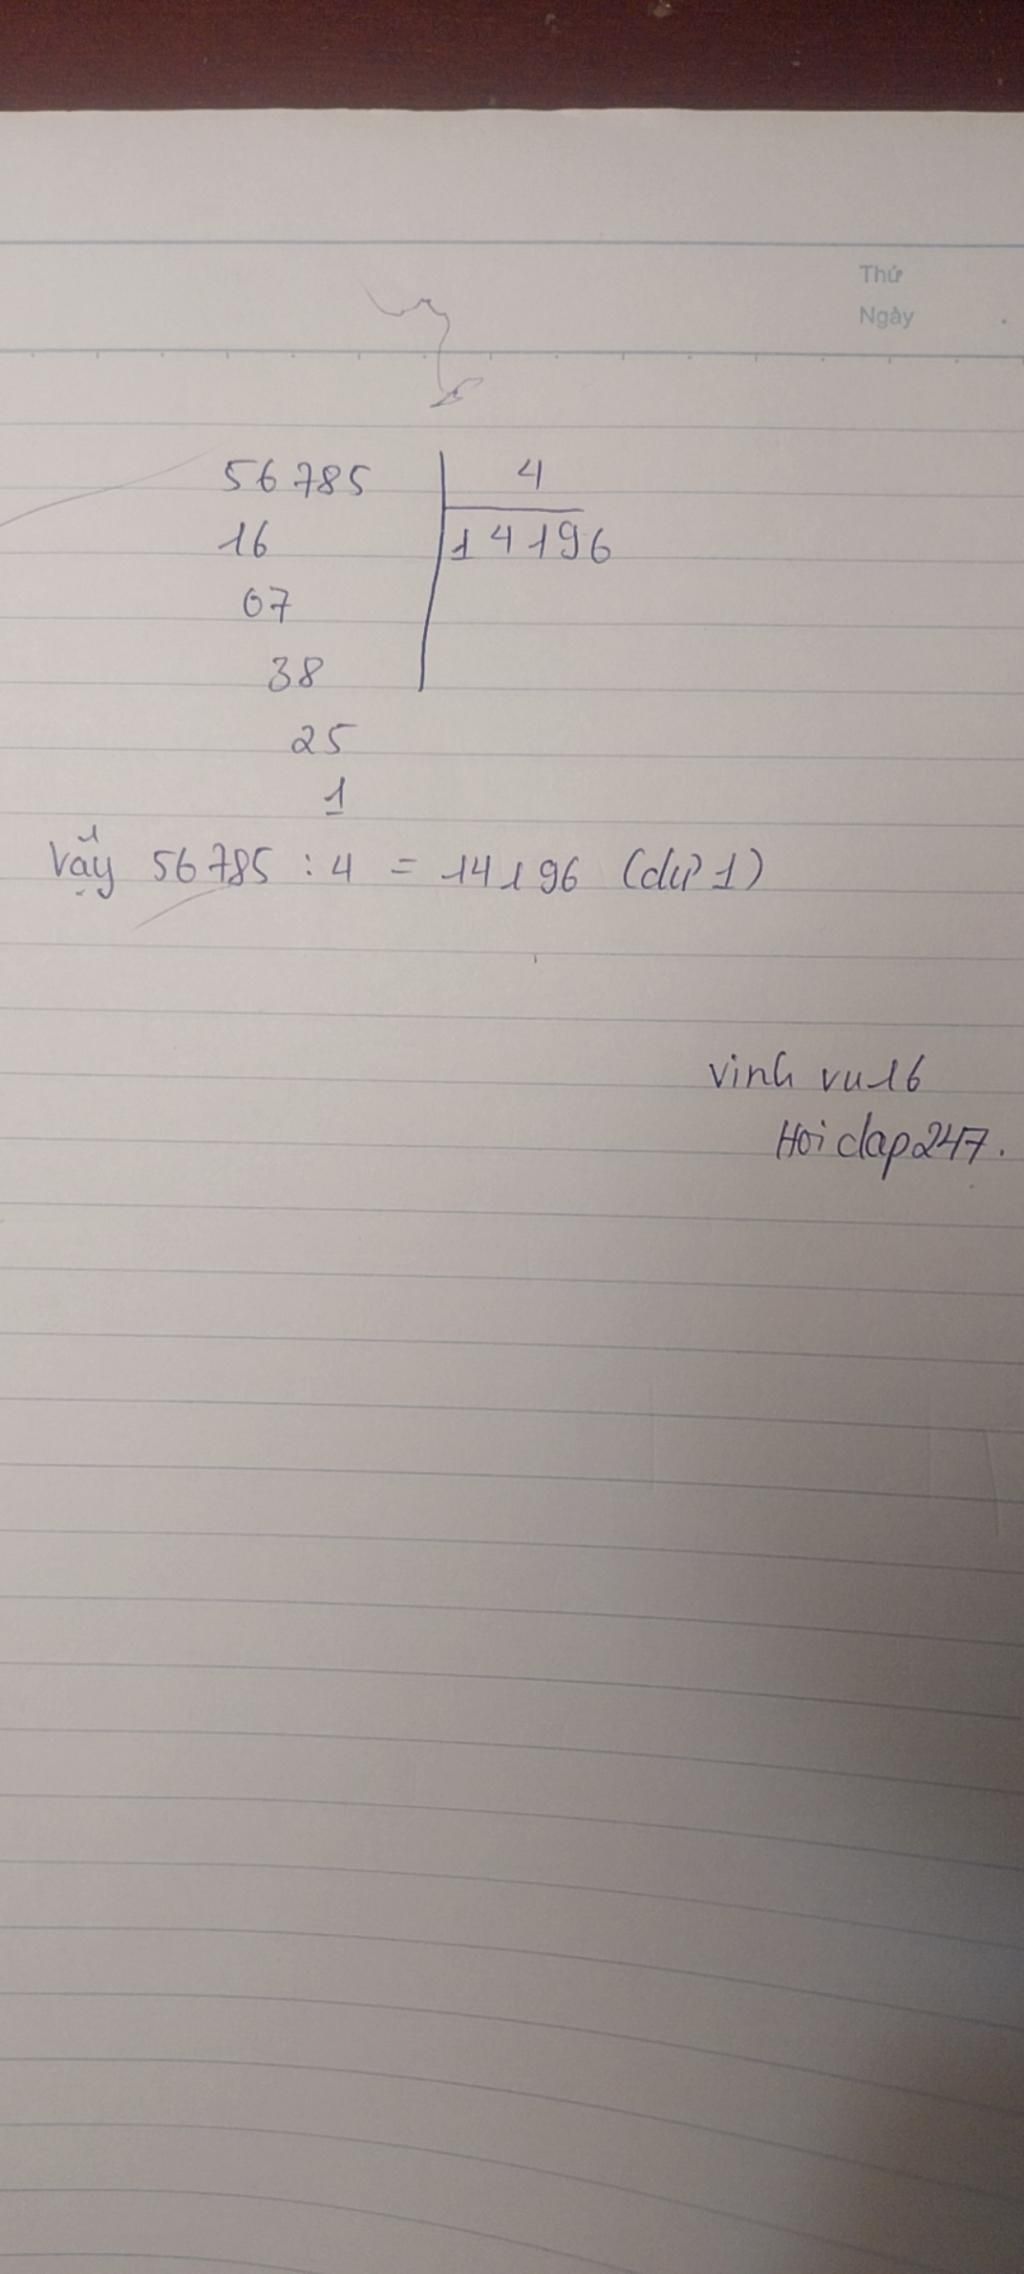 Thứ
Ngày
56785 4
16 14196
07
38
25
1
Vậy 56785 : 4 = 14196 (dư 1)
vinh vu16
Hoidap247.